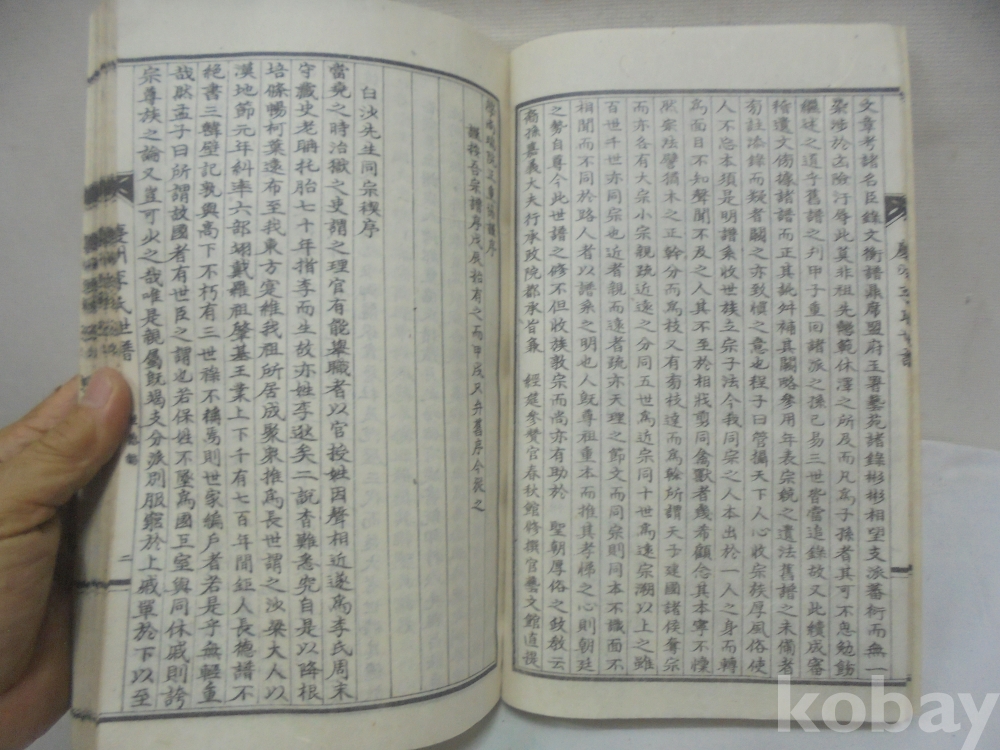 文章考諸名臣錄文衡譜鼎席盟府玉署藝苑諸錄彬彬相望支派蕃衍而無一
染涉於岳險汙辱此莫非祖先懿範休澤之所及而凡爲子孫者其可不思勉飭
繼述之道乎舊譜之刊甲子重回諸派之孫已易三世皆當追錄故又此續成審
稽遺文傍據諸譜而正其訛舛補其闕略參用年表宗統之遺法舊譜之未備者
旁註添錄而疑者闕之亦致愼之意也程子曰管攝天下人心收宗族厚風俗使
人不忘本須是明譜系收世族立宗子法今我同宗之人本出於一人之身而轉
爲面目不知聲聞不及之人其不至於相戕剪同禽獸者幾希顧念其本寧不懍
然案法譬猶木之正幹分而爲枝又有旁枝達而爲榦所謂天子建國諸侯奪宗
而亦各有大宗小宗親疏近遠之分同五世爲近宗同十世爲遠宗溯以上之雖
百世千世亦同宗也近者親而遠者疏亦天理之節文而同宗則同本不識面不
相聞而不同於路人者以譜系之明也人旣尊祖重本而推其孝悌之心則朝廷
之勢自尊今此世譜之修不但收族敦宗而尚亦有助於 聖朝厚俗之敎云
裔孫嘉義大夫行承政院都承旨兼 經筵參贊官春秋館修撰官藝文館直提
謹按吾宗譜序戊辰始有之而甲戌只弁舊序今長之
白沙先生同宗稧序
當堯之時治獄之吏謂之理官有能擧職者以官授姓因聲相近遂爲李氏周末
守藏史老聃托胎七十年指李而生故亦姓李逖矣二說杳難悉究自是以降根
培條暢柯葉遠布至我東方寔維我祖所居成聚衆推爲長世謂之沙梁大人以
漢地節元年糾率六部翊戴羅祖肇基王業上下千有七百年間鉅人長德譜不
絶書三韓壁記孰與高下不朽有三世祿不稱焉則世家編戶者若是乎無輕重
哉然孟子曰所謂故國者有世臣之謂也若保姓不墜爲國巨室與同休戚則誇
宗尊族之論又豈可少之哉唯是親屬旣竭支分派別服窮於上戚單於下以至
慶州李氏世譜
二
kobay